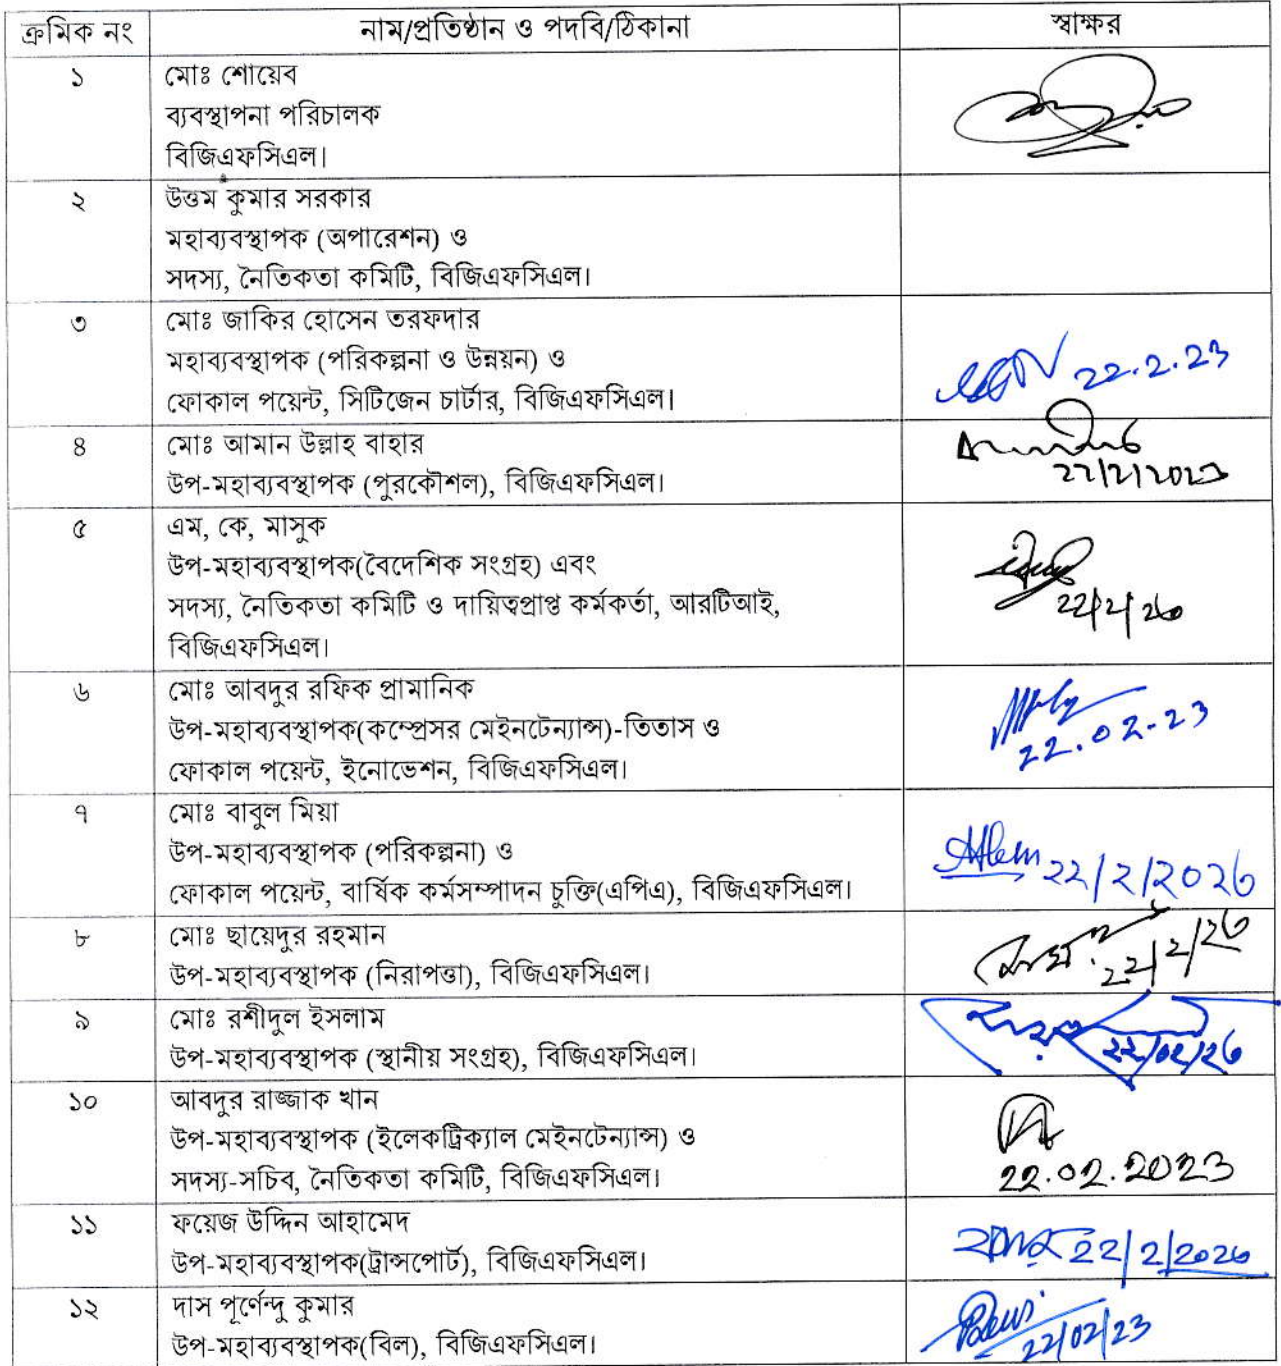 ক্রমিক নং	নাম/প্রতিষ্ঠান ও পদবি/ঠিকানা	স্বাক্ষর
১	মোঃ শোয়েব
ব্যবস্থাপনা পরিচালক
বিজিএফসিএল।
২	উত্তম কুমার সরকার
মহাব্যবস্থাপক (অপারেশন) ও
সদস্য, নৈতিকতা কমিটি, বিজিএফসিএল।
৩	মোঃ জাকির হোসেন তরফদার
মহাব্যবস্থাপক (পরিকল্পনা ও উন্নয়ন) ও	22.2.23
ফোকাল পয়েন্ট, সিটিজেন চার্টার, বিজিএফসিএল।
৪	মোঃ আমান উল্লাহ বাহার
উপ-মহাব্যবস্থাপক (পুরকৌশল), বিজিএফসিএল।	২২/২/২০২৩
৫	এম, কে, মাসুক
উপ-মহাব্যবস্থাপক(বৈদেশিক সংগ্রহ) এবং
সদস্য, নৈতিকতা কমিটি ও দায়িত্বপ্রাপ্ত কর্মকর্তা, আরটিআই,	২২/২/২৩
বিজিএফসিএল।
৬	মোঃ আবদুর রফিক প্রামানিক
উপ-মহাব্যবস্থাপক(কম্প্রেসর মেইনটেন্যান্স)-তিতাস ও	22.02.23
ফোকাল পয়েন্ট, ইনোভেশন, বিজিএফসিএল।
৭	মোঃ বাবুল মিয়া
উপ-মহাব্যবস্থাপক (পরিকল্পনা) ও
ফোকাল পয়েন্ট, বার্ষিক কর্মসম্পাদন চুক্তি(এপিএ), বিজিএফসিএল।	২২/২/২০২৩
৮	মোঃ ছায়েদুর রহমান
উপ-মহাব্যবস্থাপক (নিরাপত্তা), বিজিএফসিএল।	২২/২/২৩
৯	মোঃ রশীদুল ইসলাম
উপ-মহাব্যবস্থাপক (স্থানীয় সংগ্রহ), বিজিএফসিএল।	২২/০২/২৩
১০	আবদুর রাজ্জাক খান
উপ-মহাব্যবস্থাপক (ইলেকট্রিক্যাল মেইনটেন্যান্স) ও
সদস্য-সচিব, নৈতিকতা কমিটি, বিজিএফসিএল।	22.02.2023
১১	ফয়েজ উদ্দিন আহামেদ
উপ-মহাব্যবস্থাপক(ট্রান্সপোর্ট), বিজিএফসিএল।	২২/২/২০২৩
১২	দাস পূর্ণেন্দু কুমার
উপ-মহাব্যবস্থাপক(বিল), বিজিএফসিএল।	22/02/23